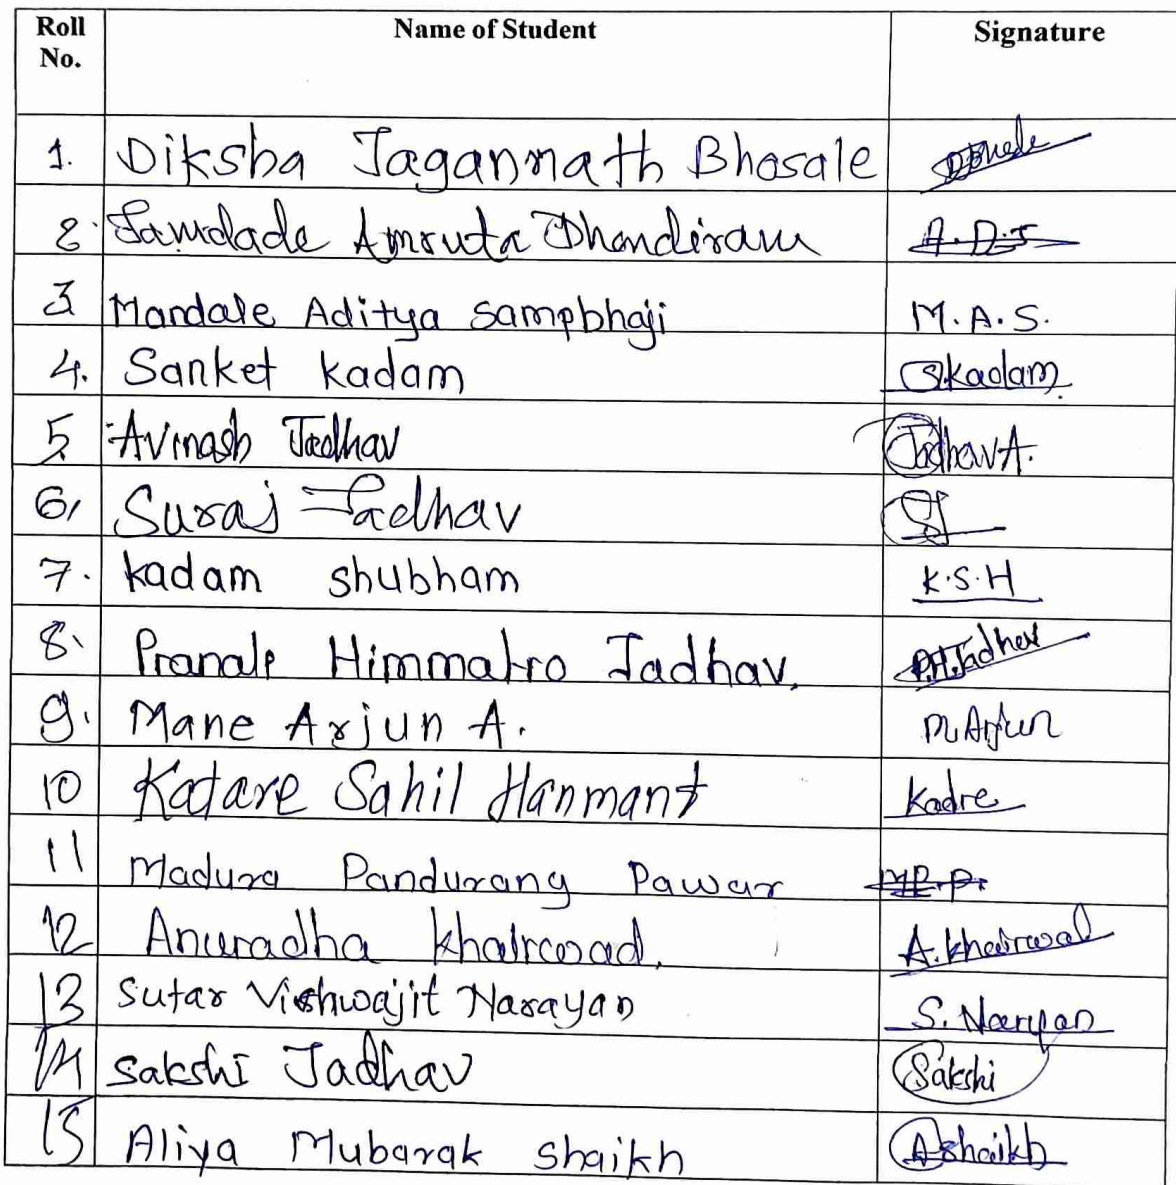 Roll No. Name of Student Signature
1. Diksha Jagannath Bhosale
2. Jamdade Amruta Dhondiram A.D.J
3 Mandale Aditya Sampbhaji M.A.S.
4. Sanket kadam S.kadam.
5. Avinash Jadhav Jadhav A.
6, Suraj Jadhav SJ
7. kadam shubham K.S.H
8. Pranale Himmatro Jadhav. P.H.Jadhav
9. Mane Arjun A. M.Arjun
10 Katare Sahil Hanmant Kadre
11 Madura Pandurang Pawar M.P.P.
12 Anuradha khairwad. A.khairwad
13 Sutar Vishwajit Narayan S. Narayan
14 Sakshi Jadhav Sakshi
15 Aliya Mubarak shaikh A shaikh